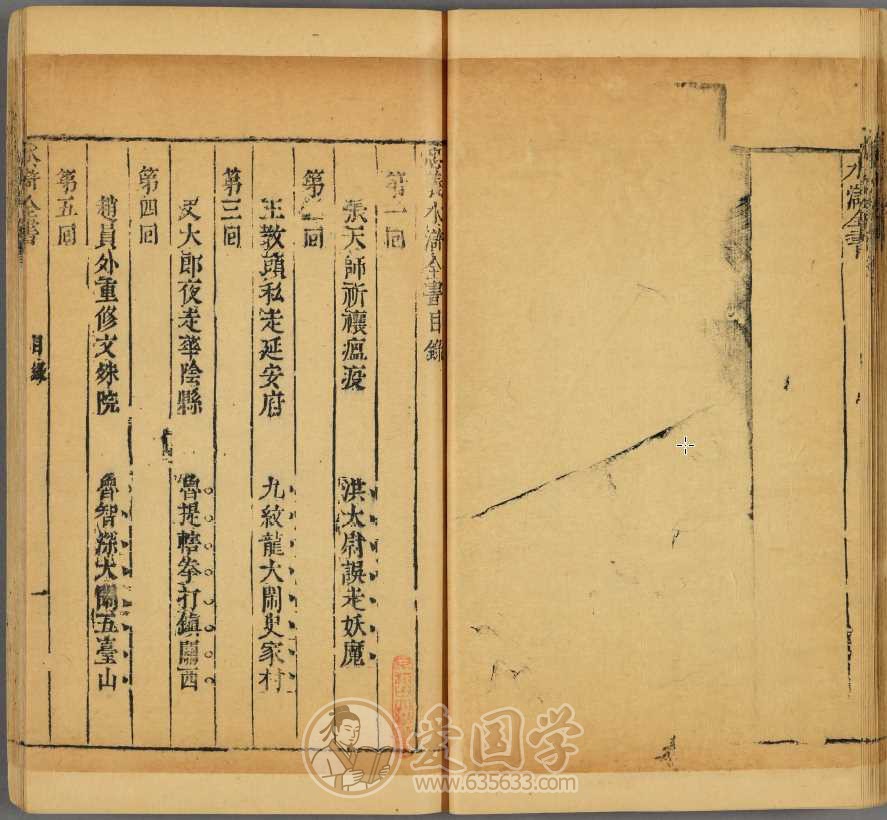 水滸全書
忠義水滸全書目錄
第一回
張天師祈禳瘟疫 洪太尉誤走妖魔
第二回
王教頭私走延安府 九紋龍大鬧史家村
第三回
史大郎夜走華陰縣 魯提轄拳打鎮關西
第四回
趙員外重修文殊院 魯智深大鬧五臺山
第五回
水滸全書 目錄 一
爱国学
www.635633.com